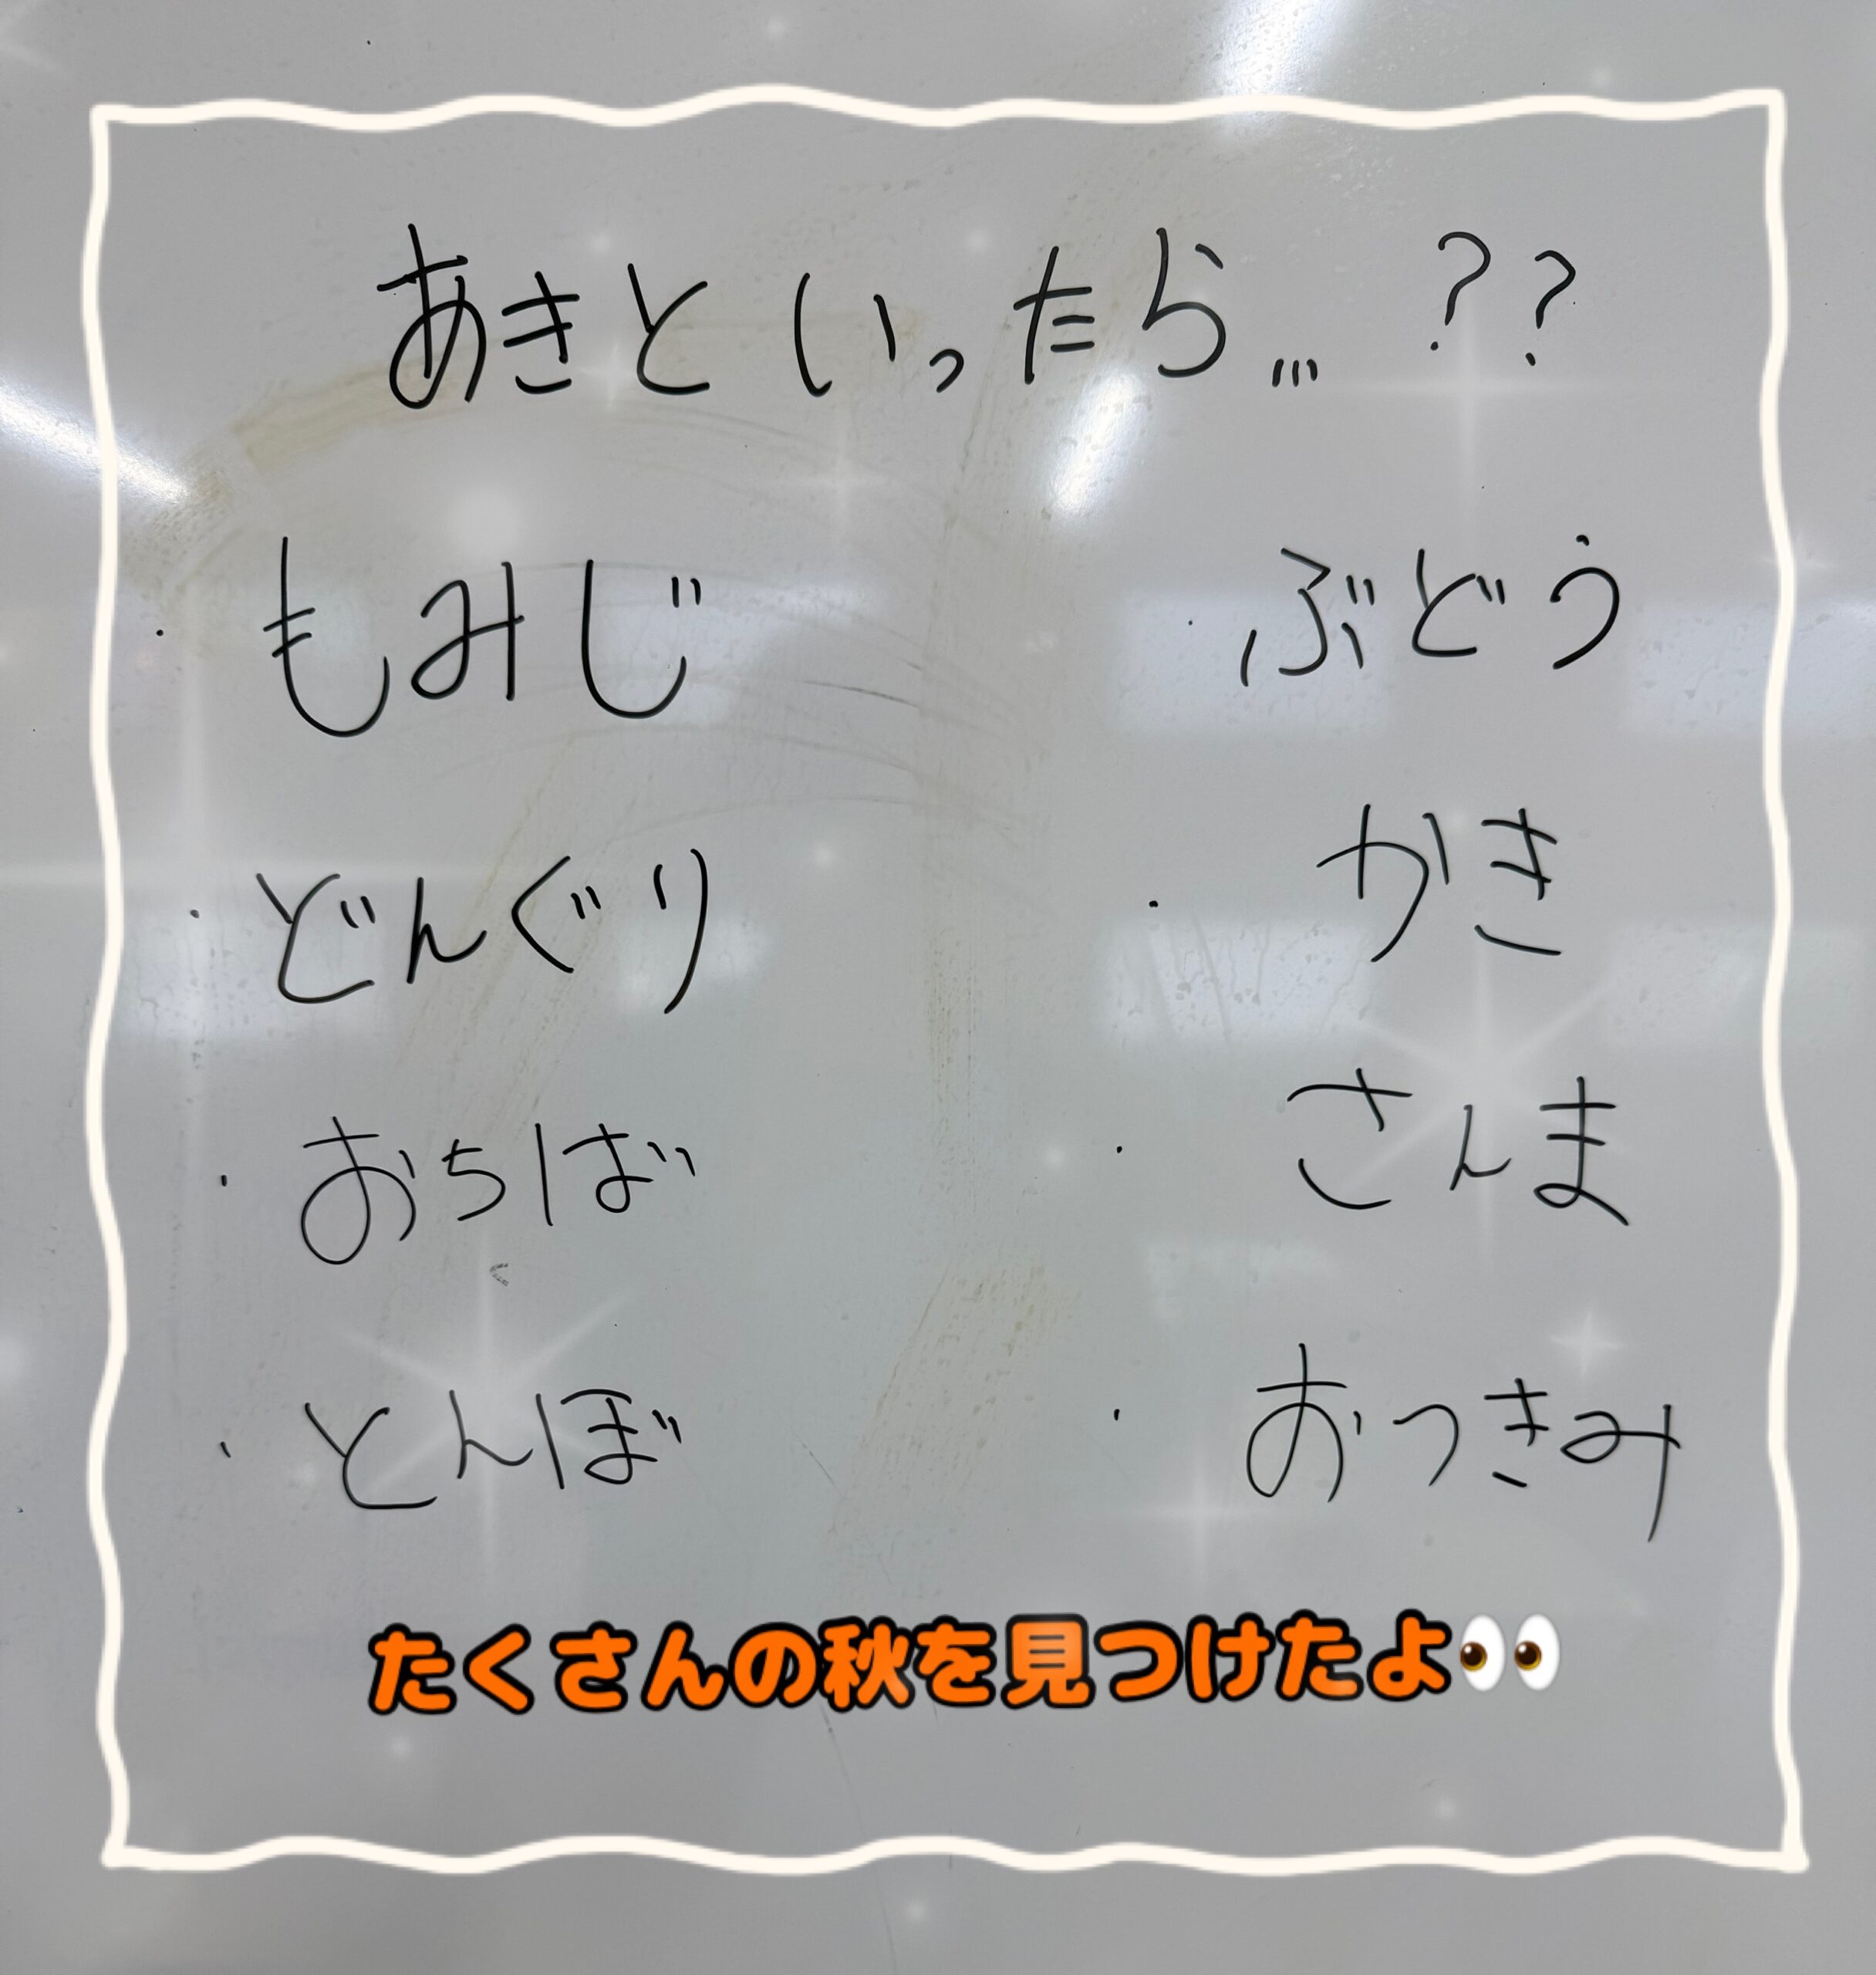 あきといったら... ??
・もみじ
・どんぐり
・おちば
・とんぼ
・ぶどう
・かき
・さんま
・おつきみ
たくさんの秋を見つけたよ👀